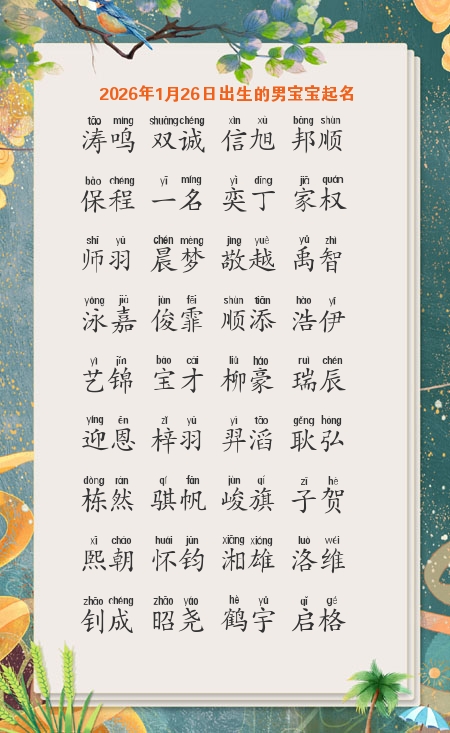 2026年1月26日出生的男宝宝起名
tāo míng shuāng chéng xìn xù bāng shùn
涛鸣 双诚 信旭 邦顺
bǎo chéng yī míng yì dīng jiā quán
保程 一名 奕丁 家权
shī yǔ chén mèng jìng yuè yǔ zhì
师羽 晨梦 敬越 禹智
yǒng jiā jùn fēi shùn tiān hào yī
泳嘉 俊霏 顺添 浩伊
yì jǐn bǎo cái liǔ háo ruì chén
艺锦 宝才 柳豪 瑞辰
yíng ēn zǐ yǔ yì tāo gěng hóng
迎恩 梓羽 羿滔 耿弘
dòng rán qí fān jùn qí zǐ hè
栋然 骐帆 峻旗 子贺
xī cháo huái jūn xiāng xióng luò wéi
熙朝 怀钧 湘雄 洛维
zhāo chéng zhāo yáo hè yǔ qǐ gé
钊成 昭尧 鹤宇 启格